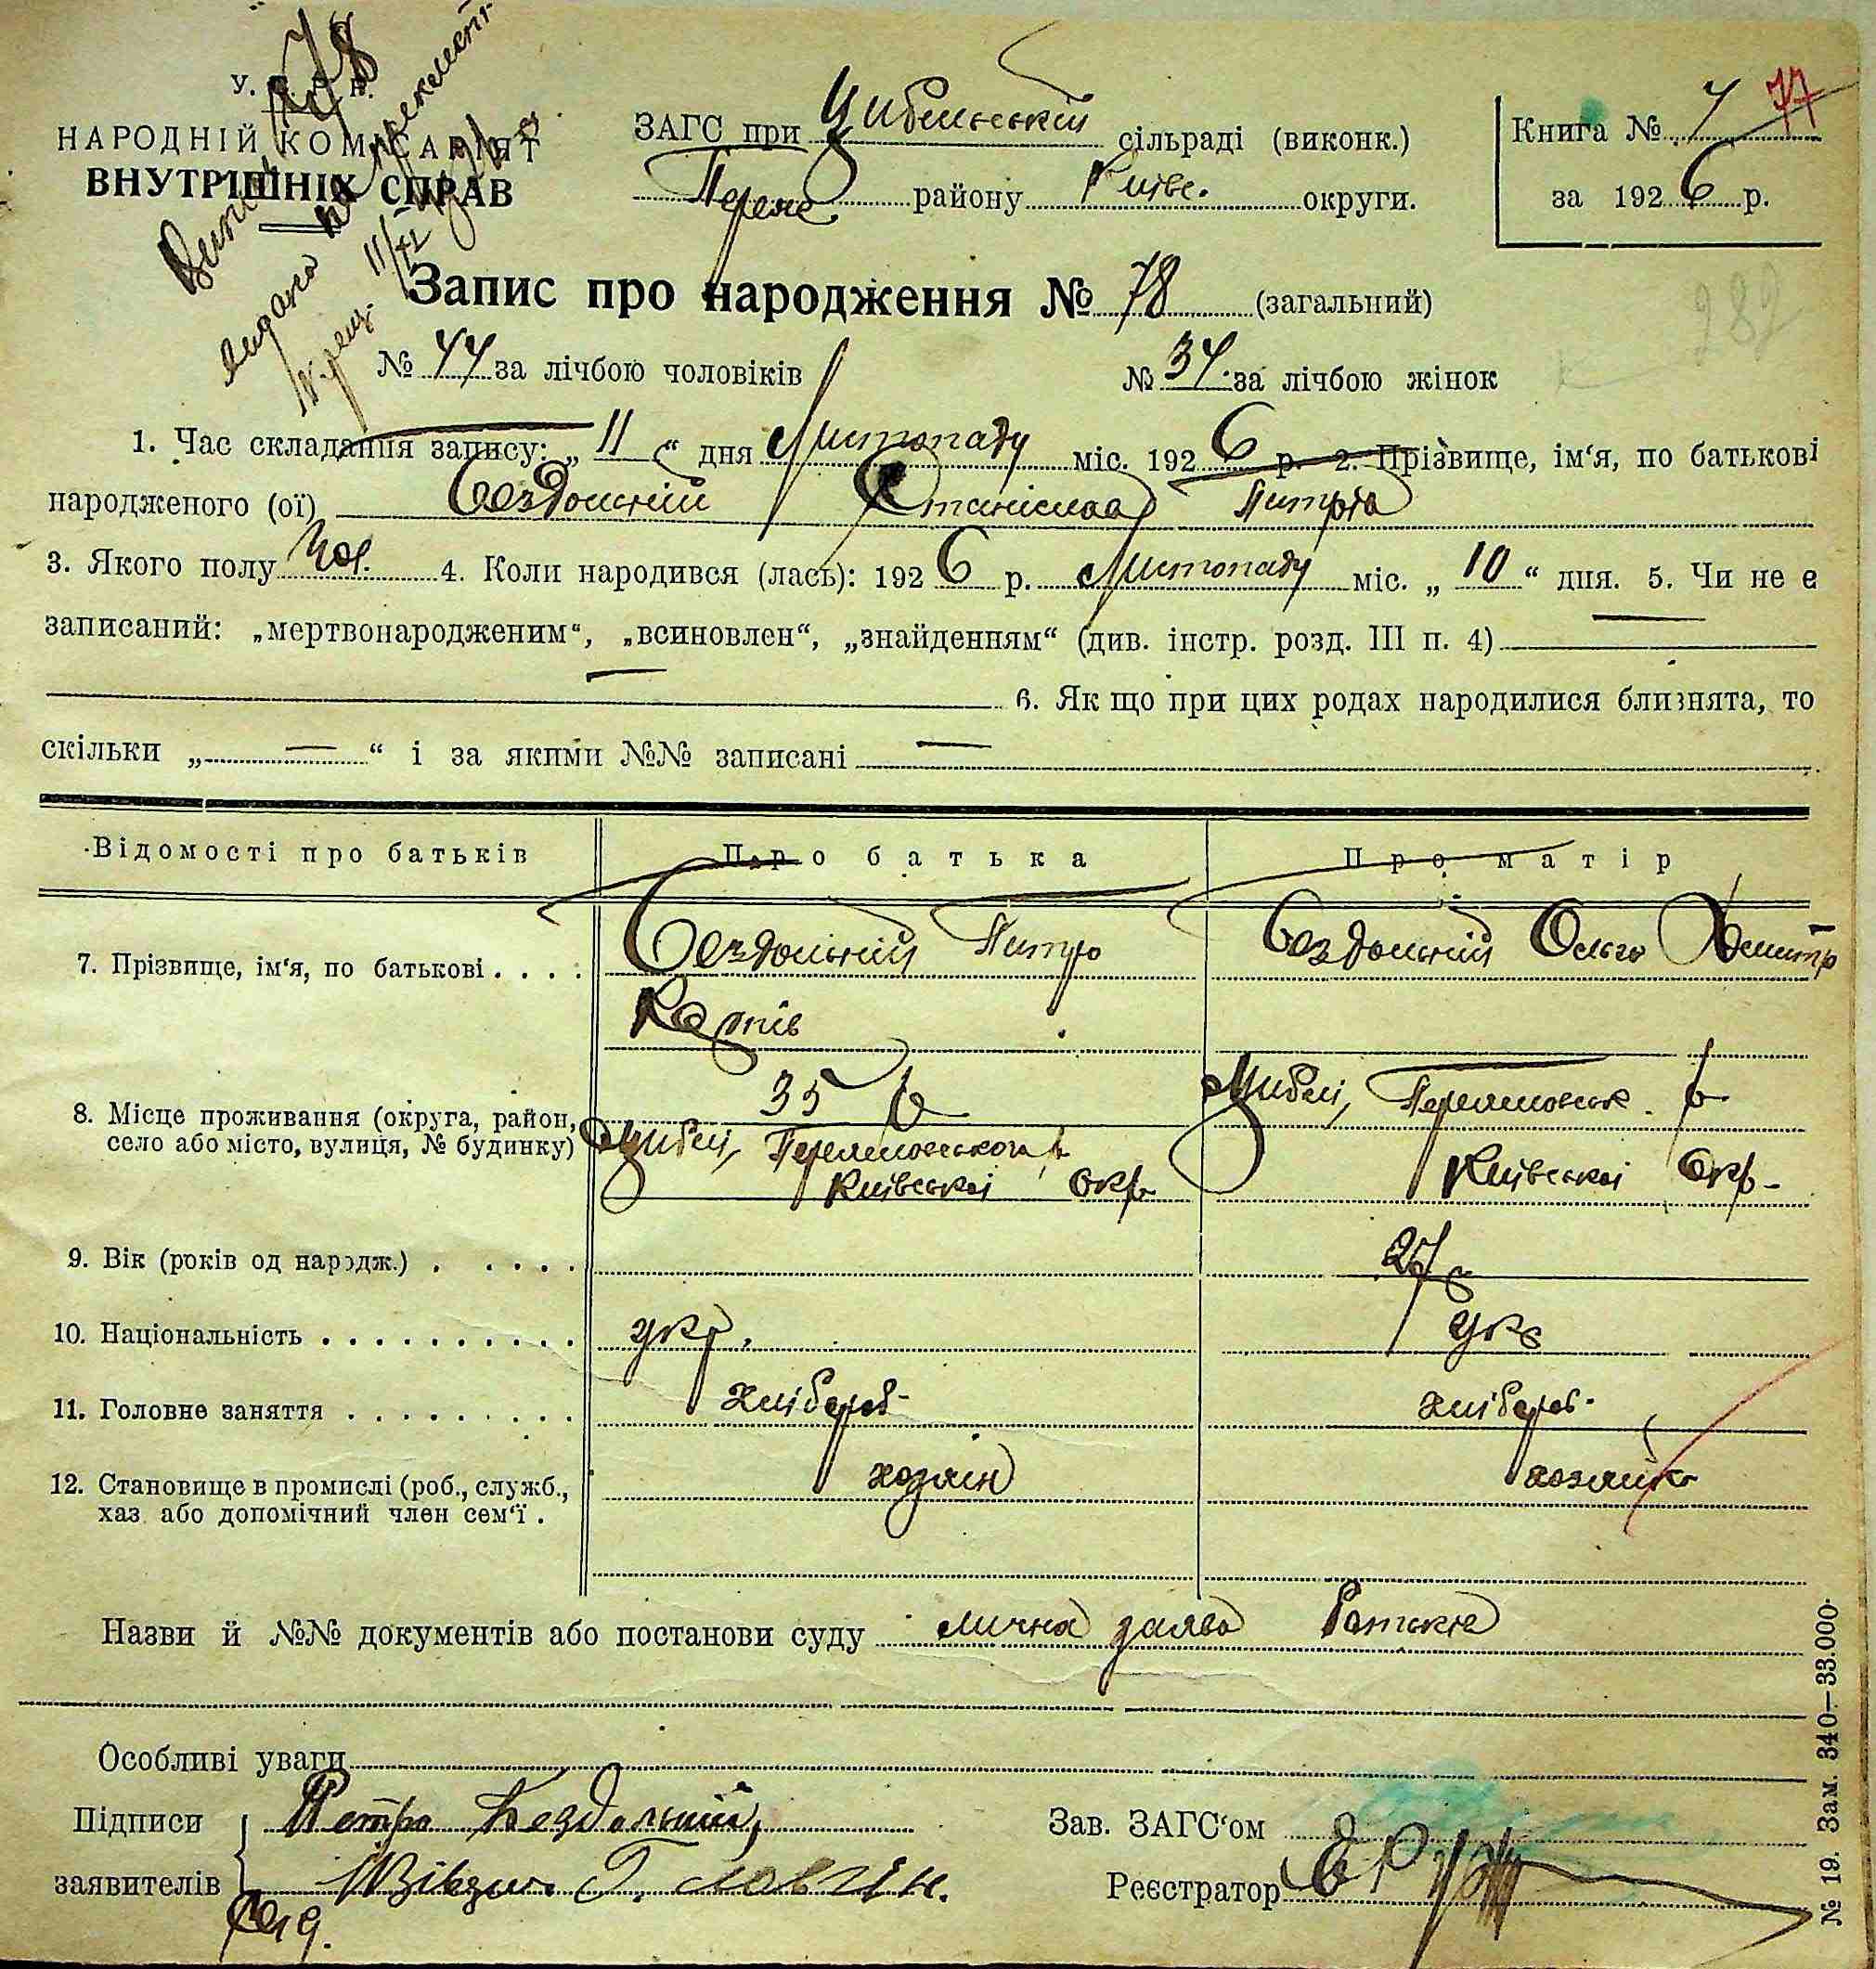 У. С. Р. Р.
НАРОДНІЙ КОМІСАРІЯТ
ВНУТРІШНІХ СПРАВ
78
видана на
11/XI
ЗАГС при Цибельській сільраді (виконк.)
Переяс районy Київс. округи.
Книга № 7 77
за 1926 р.
Запис про народження № 78 (загальний)
282
№ 44 за лічбою чоловіків № 34. за лічбою жінок
1. Час складання запису: „ 11 “ дня Листопаду міс. 1926 р. 2. Прізвище, ім‘я, по батькові
народженого (ої) Бездольний Станіслав Питро
3. Якого полу чол. 4. Коли народився (лась): 1926 р. Листопаду міс. „ 10 “ дня. 5. Чи не є
записаний: „мертвонародженим“, „всиновлен“, „знайденням“ (див. інстр. розд. III п. 4) —
— 6. Як що при цих родах народилися близнята, то
скільки „ — “ і за якими №№ записані —
Відомості про батьків Про батька Про матір
7. Прізвище, ім‘я, по батькові . . . . Бездольній Питро Бездольній Ольга Дмитр
Карпів
35 р
8. Місце проживання (округа, район, село або місто, вулиця, № будинку) Цибелі, Переяловського р Київської Окр Цибелі, Переяловськ. р Київської Окр-
9. Вік (років од народж.) . . . . . 27 р
10. Національність . . . . . . . . . . укр. укр
11. Головне заняття . . . . . . . . . хліброб- хліброб-
12. Становище в промислі (роб., служб., хаз. або допомічний член сем‘ї . хозяін хозяйка
Назви й №№ документів або постанови суду лична заява батька
Особливі уваги
Підписи Петро Бездольний,
заявителів
Зав. ЗАГС‘ом
Реєстратор
№ 19. Зам. 340—33.000.